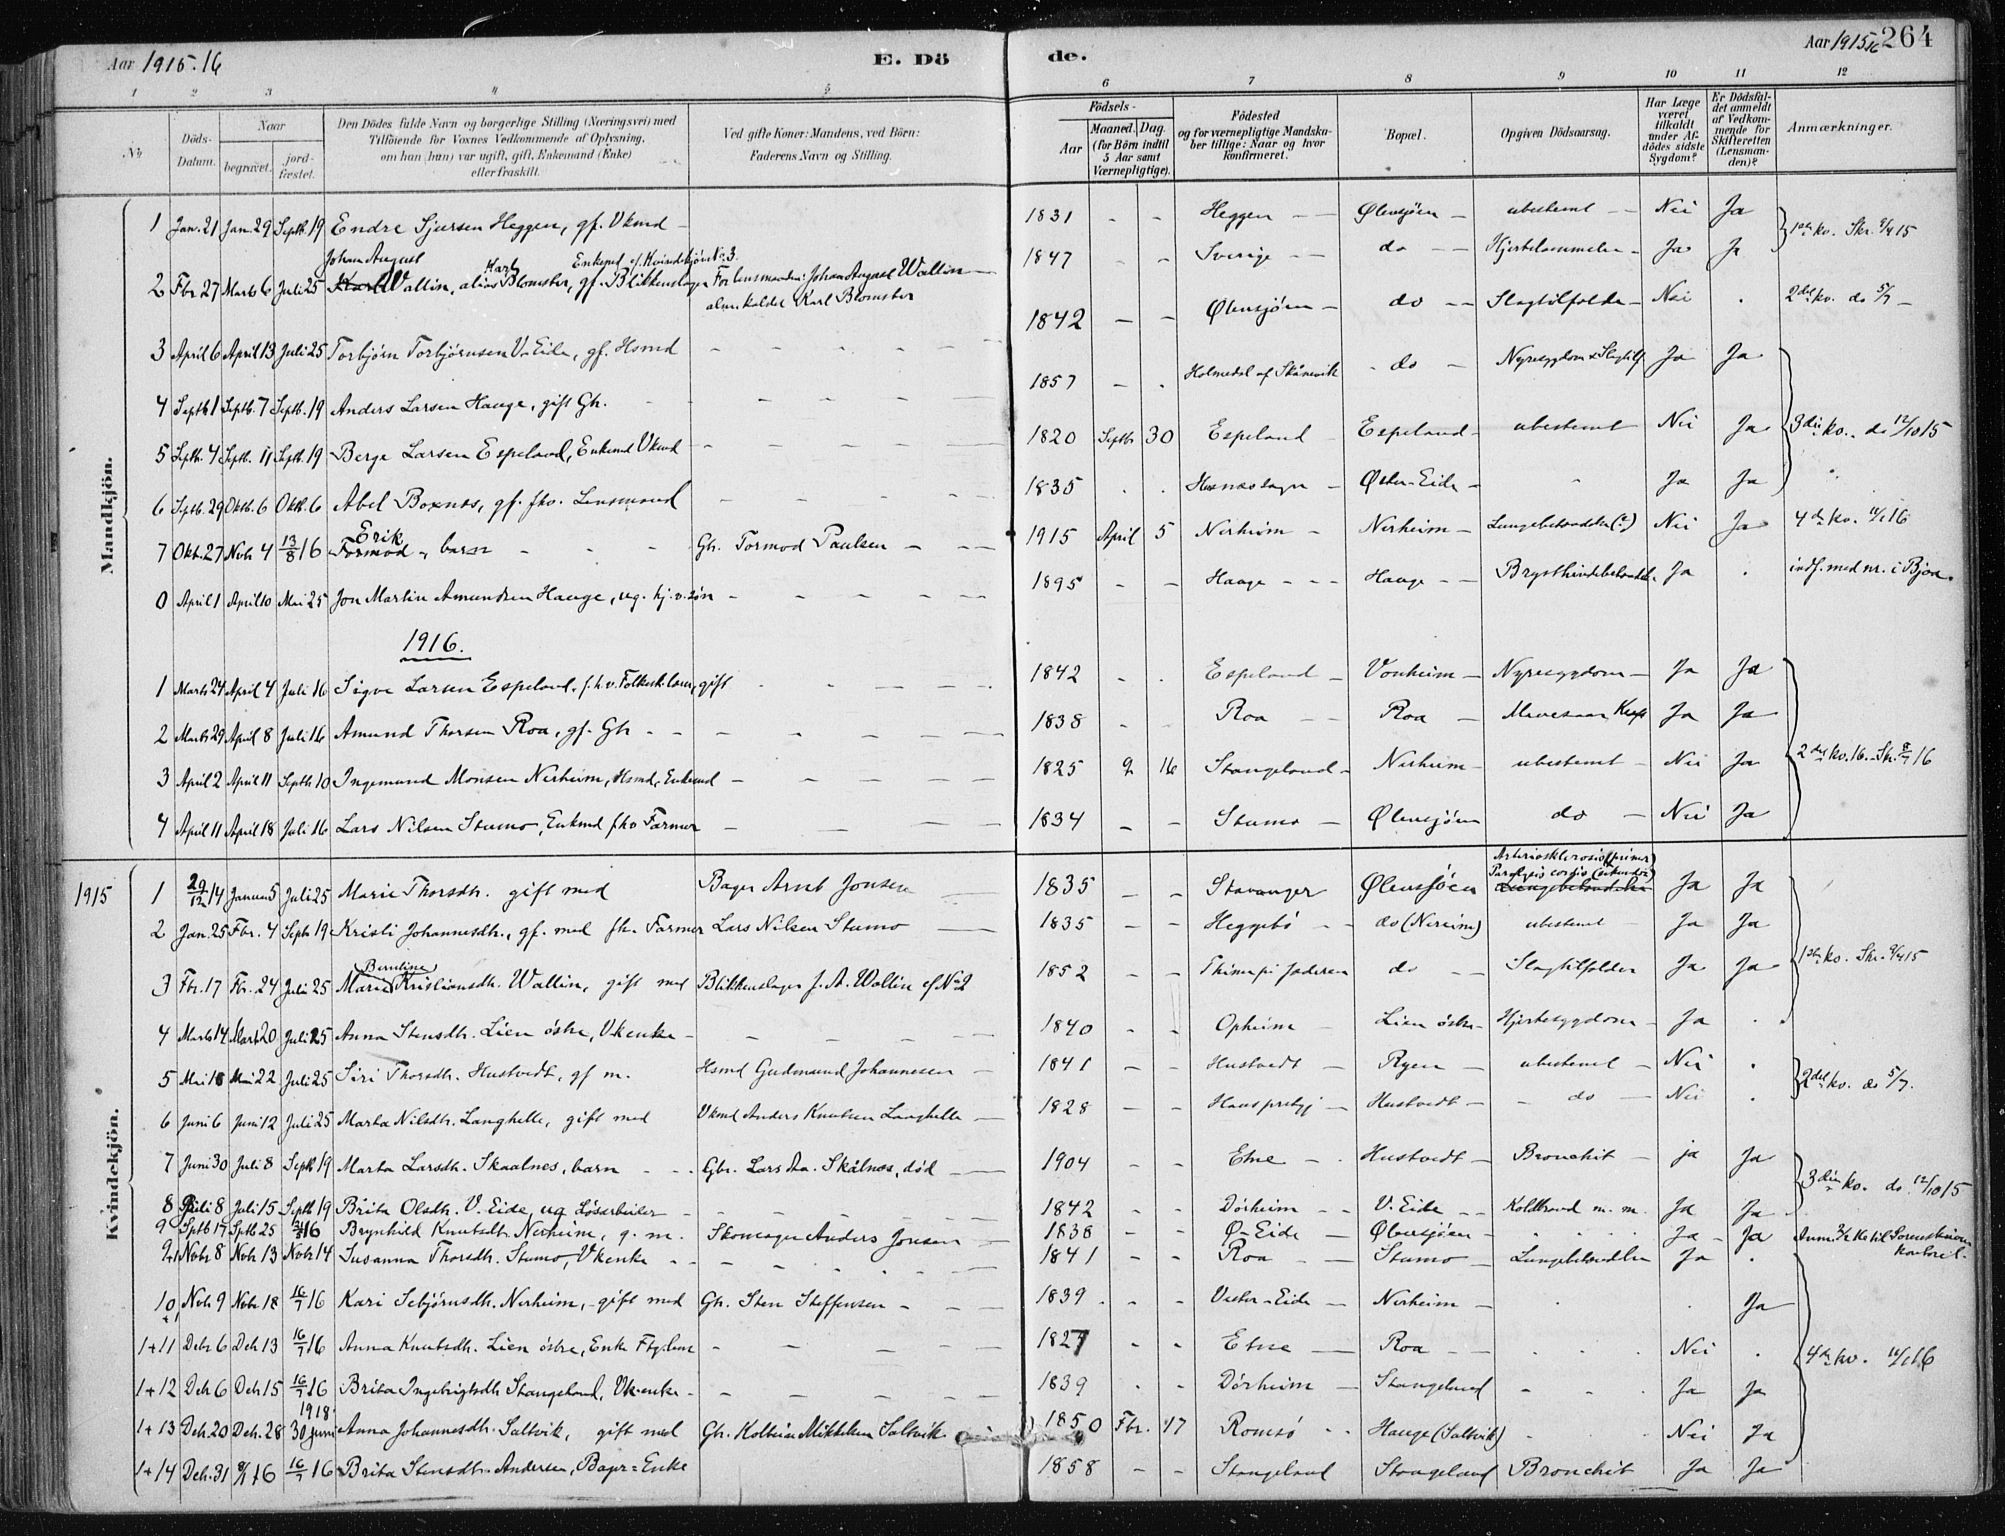 Aar 1915.16
E. Dö
de.
Aar 1915.16
264
1 2 3 4 5 6 7 8 9 10 11 12
No
Döds-Datum.
Naar
begravet.
jordfæstet.
Den Dödes fulde Navn og borgerlige Stilling (Næringsvei) med Tilföiende for Voxnes Vedkommende af Oplysning, om han (hun) var ugift, gift, Enkemand (Enke) eller fraskilt.
Ved gifte Koner: Mandens, ved Börn: Faderens Navn og Stilling.
Födsels-
Aar
Maaned. Dag.
(for Börn indtil 5 Aar samt Værnepligtige).
Födested og for værnepligtige Mandskaber tillige: Naar og hvor konfirmeret.
Bopæl.
Opgiven Dödsaarsag.
Har Læge været tilkaldt under Afdödes sidste Sygdom?
Er Dödsfaldet anmeldt af Vedkommende for Skifteretten (Lensmanden)?
Anmærkninger.
Mandkjön.
1 Jan. 21 Jan. 29 Septb. 19 Endre Sjursen Heggen, gf. Vkmd - 1831 - - Heggen - - Ølensjøen - ubestemt - - Nei Ja 1ste kv. Skr. 9/4 15
Johan August Karl Enkemd cf. Kvindekjøn No. 3.
2 Fbr. 27 Marts 6 Juli 25 Wallin, alias Blomster, gf. Blikkenslager For lensmanden: Johan August Wallin alm. kaldt Karl Blomster 1847 - - Sverige - - do - - Hjertelammelse - Ja Ja
3 April 6 April 13 Juli 25 Torbjørn Torbjørnsen V-Eide, gf. Hsmd 1842 - - Ølensjøen - do - - Slagtilfælde - Nei . 2det kv. do 5/7 -
4 Septb 1 Septb. 7 Septb. 19 Anders Larsen Hauge, gift Gbr. 1857 - . Holmedal af Skånevik - do - Nyresygdom & Slagtilf Ja Ja
5 Septb. 4 Septb. 11 Septb. 19 Berge Larsen Espeland, Enkemd Vkmd 1820 Septb 30 Espeland - Espeland - ubestemt Nei Ja 3die kv. do 12/10 15
6 Septb. 29 Oktb. 6 Oktb. 6 Abel Boxnæs, gf. fhv. Lensmand 1835 . . Husnæs sogn - Øster-Eide - " Ja Ja
7 Okt. 27 Nvbr 4 13/8 16 Erik Tormod, barn Gb. Tormod Paulsen - 1915 April 5 Nerheim - Nerheim - Lungebetændelse (?) Nei Ja 4de kv. 11/1 16
0 April 1 April 10 Mai 25 Jon Martin Amundsen Hauge, ug. hj. v. søn 1895 - - Hauge - - - Hauge - - Brysthindebetændelse Ja . indf. med nr. i Bjoa.
1916.
1 Marts 24 April 4 Juli 16 Sigve Larsen Espeland, f. h. v. Folkesk.lærer, gift 1842 - . Espeland - Vonheim - Nyresygdom - Ja Ja
2 Marts 29 April 8 Juli 16 Amund Thorsen Roa, gf. Gbr 1838 - - Roa - - Roa - Mavesaar Kræft Ja Ja
3 April 2 April 11 Septb 10 Ingemund Monsen Nerheim, Hsmd, Enkemd 1825 9 16 Stangeland - Nerheim - ubestemt - Nei Ja 2det kv. 16. Skr. 8/7 16
4 April 11 April 18 Juli 16 Lars Nilsen Stumo, Enkmd fhv Farmer 1834 - - Stumo - Ølensjøen do - Nei Ja
Kvindekjön.
1915 1 29/12 14 Januar 5 Juli 25 Marie Thorsdtr. gift med Bager Arnt Jonsen 1835 - - Stavanger Ølensjøen Arteriosklerosis (primær) Paralysis cordis (sekundær) Lungebetændelse Ja Ja
2 Jan. 25 Fbr. 4 Septb 19 Kristi Johannesdtr., gf. med fh. Farmer Lars Nilsen Stumo 1835 - - Heggebø - do (Nerheim) ubestemt Ja Ja 1ste kv. Skr. 9/4 15
3 Fbr. 17 Fbr. 24 Juli 25 Marie Berntine Kristiansdtr. Wallin, gift med Blikkenslager J. A. Wallin cf No 2 1852 - - Thime på Jæderen do - - Slagtilfælde Ja Ja
4 Marts 14 Marts 20 Juli 25 Anna Stensdtr. Lien østre, Vkenke - 1840 - - Opheim - Lien østre - Hjertesygdom - Ja .
5 Mai 18 Mai 22 Juli 25 Siri Thorsdtr. Hustvedt, gf m. Hsmd Gudmund Johannesen - 1841 - - Hustvedt - Ryen - ubestemt - Nei . 2det kv. do 5/7.
6 Juni 6 Juni 12 Juli 25 Marta Nilsdtr. Langhelle, gift med Vkmd Anders Knutsen Langhelle 1828 - - Haus prstgj - Hustvedt - do - Nei .
7 Juni 30 Juli 8 Septb 19 Marta Larsdtr. Skaalnes, barn Gbr. Lars Aa. Skålnæs, død 1904 - - Etne - Hustvedt - Bronchit - ja Ja 3die kv. do. 12/10 15
8 Juli 8 Juli 15 Septb 19 Brita Olsdtr. V. Eide, ug Løsarbeider 1842 - - Dørheim - - V. Eide - - Koldbrand m. m. Ja Ja
9 Septb 17 Septb 25 16 Brynhild Knutsdtr. Nerheim, g. m. Skomager Anders Jonsen 1838 - - Ø-Eide - Ølensjøen Ja - Ja
Nvbr 8 Nvbr 13 Nvbr 14 Susanna Thorsdtr. Stumo, Vkenke 1841 - - Roa - - Stumo - Lungebetændelse Ja .
10 Nvbr 9 Nvbr 18 16/7 16 Kari Sebjørnsdtr. Nerheim, gift med Gb. Sten Steffensen 1839 . - - Vester-Eide - Nerheim - . Ja
1+11 Debr 6 Debr 13 16/7 16 Anna Knutsdtr. Lien østre, Enke 1827 - - Etne - Roa - - Nei . 4de kv. 11/1 16
1+12 Debr 6 Debr 15 16/7 16 Brita Ingebrigtsdtr Stangeland, Vk-enke - 1839 - - Dørheim - Stangeland - Ja Ja
1+13 Debr. 20 Debr. 28 1918. 30 juni Anna Johannesdtr. Saltvik, gift med Gb. Kolbein Mikkelsen Saltvik 1850 Fbr. 17 Romsø - - Hauge (Saltvik) Nei Ja
1+14 Debr. 31 8/1 16 16/7 16 Brita Stensdtr Andersen, Bager-Enke 1858 - - Stangeland Stangeland Bronchit Ja Ja